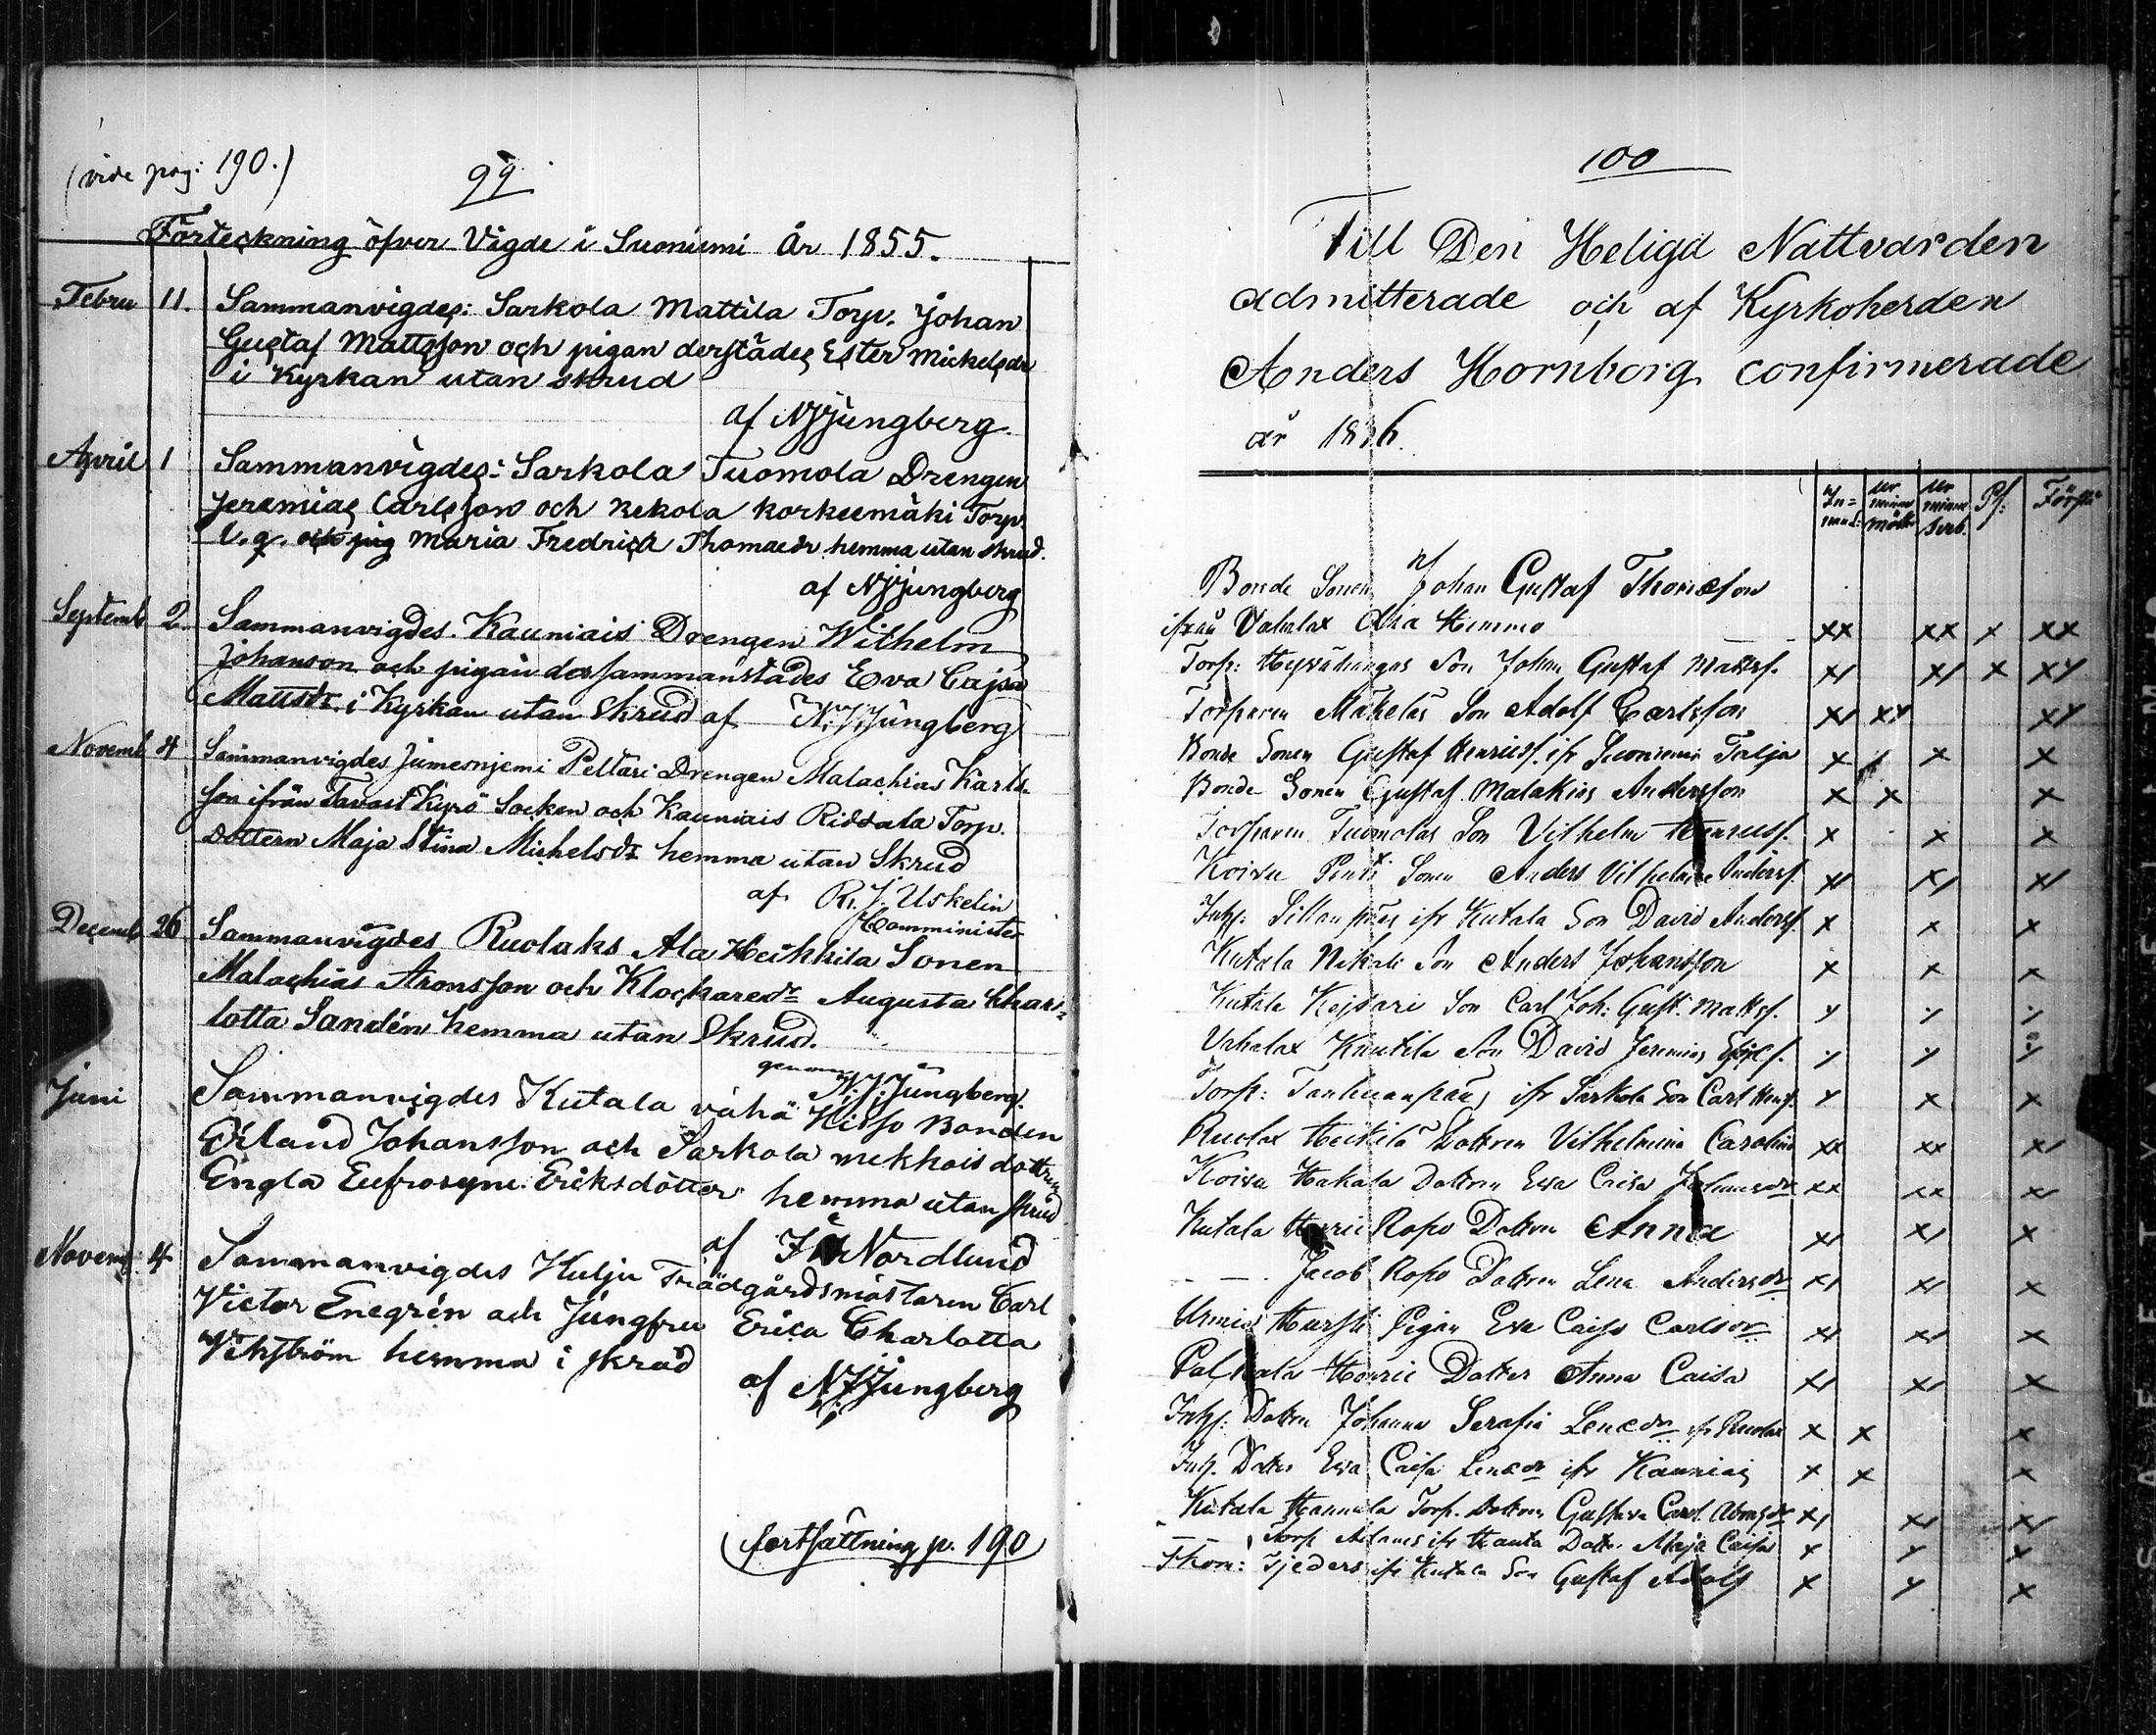 (vide pag: 190.)
99.
Förteckning öfver Vigde i Suoniemi år 1855.
Febru 11. Sammanvigdes: Sarkola Mattila Torp. Johan
Gustaf Mattsson och pigan derstädes Ester Mickelsdr
i Kyrkan utan skrud
af NJJungberg.
April 1 Sammanvigdes: Sarkola Tuomola Drengen
Jeremias Carlsson och Kekola Korkeemäki Torp.
Maria Fredrica Thomasdr hemma utan skrud.
af NJJungberg
Septemb 2. Sammanvigdes. Kauniais Drengen Wilhelm
Johanson och pigan dersammanstädes Eva Cajsa
Mattsdr. i Kyrkan utan Skrud af N.J.Jungberg
Novemb 4 Sammanvigdes Jumesnjemi Peltari Drengen Malachias Karls-
son ifrån Tavast Kyrö Socken och Kauniais Riddala Torp.
Dottern Maja Stina Michelsdr hemma utan Skrud
af R. J. Uskelin
Comminister
Decemb 26 Sammanvigdes Ruolaks Ala Heikkila Sonen
Malachias Aronsson och Klockaredr Augusta Char-
lotta Sandén hemma utan Skrud.
genom N.J.Jungberg.
Juni Sammanvigdes Kutala vähä Hisso Bonden
Erland Johansson och Sarkola mekkois dottren
Engla Eufrosyne Eriksdotter hemma utan skrud
af Nordlund
Novemb. 4 Sammanvigdes Kulju Trädgårdsmästaren Carl
Victor Enegrén och Jungfru Erica Charlotta
Vikström hemma i skrud
af NJJungberg
(fortsättning p. 190)
100
Till Den Heliga Nattvarden
admitterade och af Kyrkoherden
Anders Hornborg confirmerade
år 18
Ps: Först:
Bonde Sonen Johan Gustaf Thomasson
ifrån Vahalax Hemmo xx xx x xx
Torp: Son Johan Gustaf Mattss. x x
Torparen Mäkeläs Son Adolf Carlsson
Bonde Sonen Gustaf Henrikss. ifr Suoniemi Talja x x x
Bonde Sonen Gustaf Malakias Andersson x x x
Torparen Tuomolas Son Vilhelm Henrikss. x x x
Koivu Sonen Anders Vilhelm Anderss.
ifr Kutala Son David Anderss. x x x
Kutala Nikali Son Anders Johansson x x x
Kutala Son Carl Joh: Gust. Mattss.
Vahalax Knutila Son David Jeremias
Torp: ifr Sarkola Son Carl x x
Ruolax Heikilä Dottren Vilhelmina Carolina xx xx
Koivu Hakala Dottren Eva Caisa Johansdr xx xx
Kutala Ropo Dottren Anna x
Jacob Ropo Dottren Lena Andersdr x
Pigan Eva Caisa Carlsdr x
Henric Dotter Anna Caisa x
Dottren Johanna Serafia Lenasdr ifr Ruolax x x x
Dotter Eva Caisa Lenasdr ifr Kauniais x x x
Kutala Hannula Torp. Dottren Gustava Carol.
Torp ifr Dottr. Maja Caisa x
Thom: Tjeders ifr Kutala Son Gustaf Adolf x x